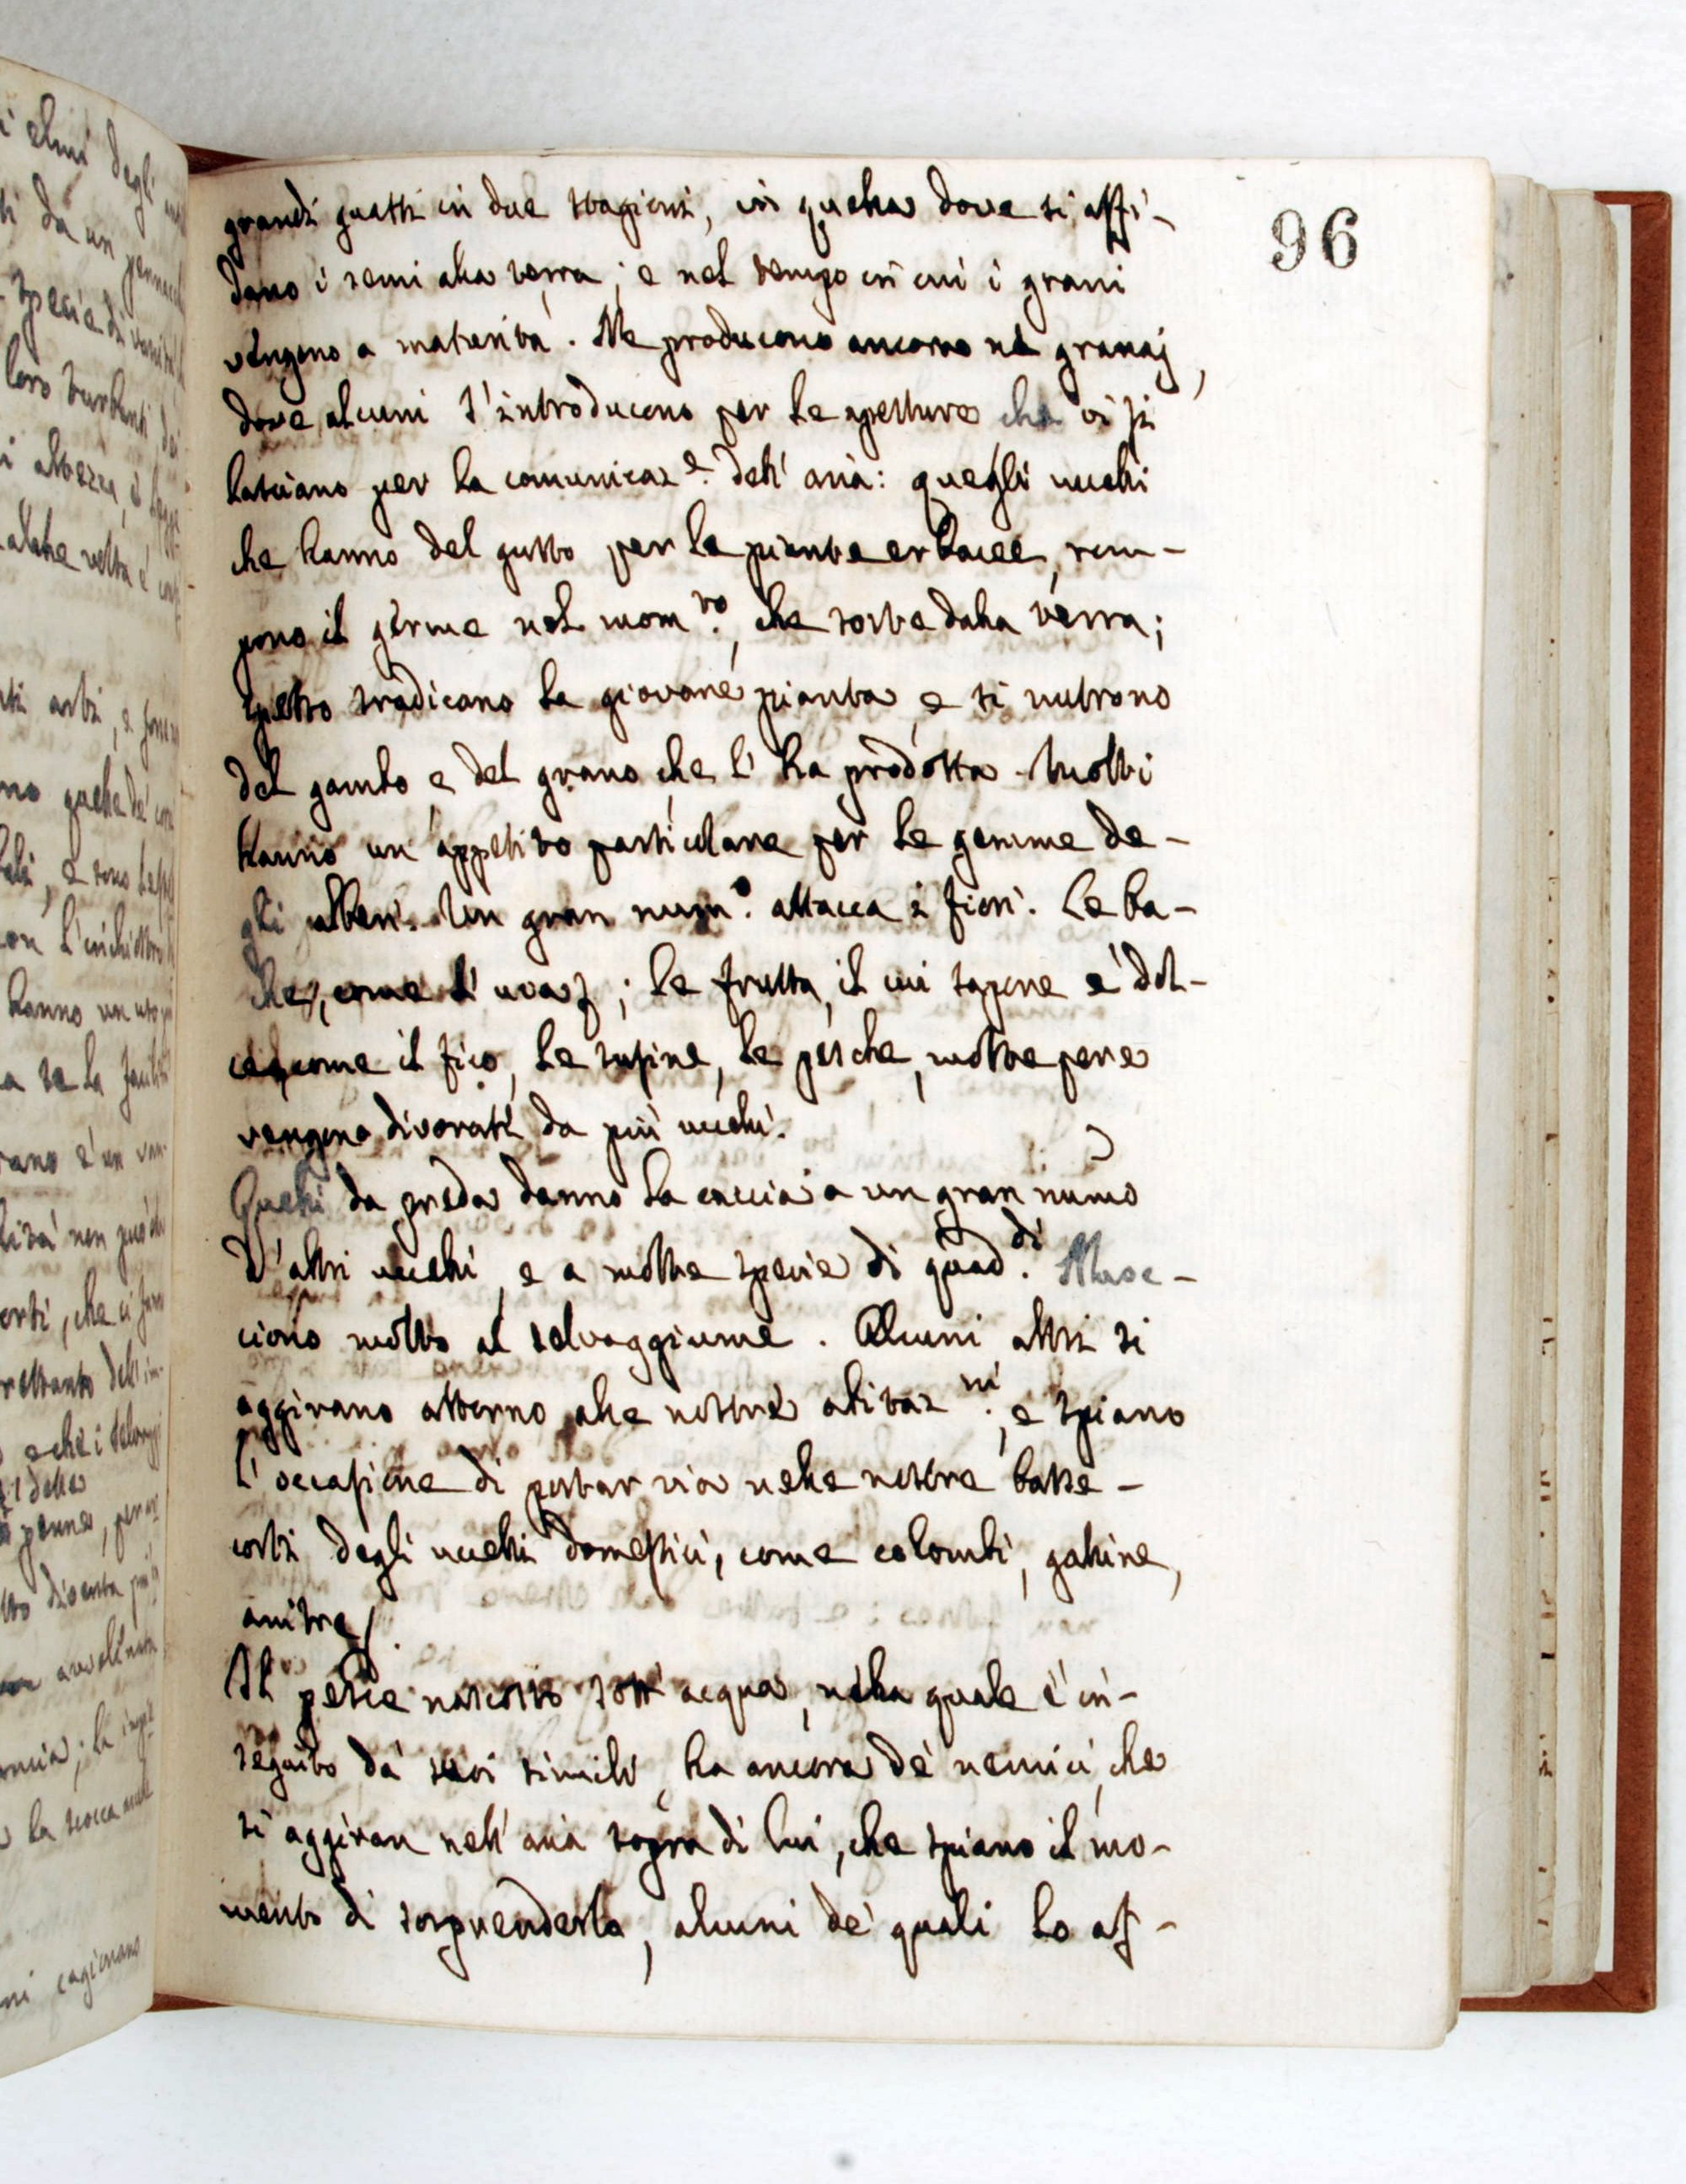 96
grandi guasti in due stagioni, in quella dove si affi-
dano i semi alla terra; e nel tempo in cui i grani
vengono a maturità. Ne producono ancora ne granaj,
dove alcuni s'introducono per le aperture che vi si
lasciano per la comunicaz.e dell'aria: quegli uccelli
che hanno del gusto per le piante erbacee, rom-
pono il germe nel mom.to, che sorte dalla terra;
spesso sradicano la giovane pianta, e si nutrono
del gambo, e del grano, che l'ha prodotta. Molti
hanno un appetito particolare per le gemme de-
gli alberi. Un gran num.o attacca i fiori. Le ba-
che, come l'uva; le frutta, il cui sapore è dol-
ce, come il fico, le susine, le pesche, molte pere
vengono divorati da più uccelli.
Quelli da preda danno la caccia a un gran numo
d'altri uccelli, e a molte specie di quad.di Nuoc-
ciono molto al selvaggiume. Alcuni altri si
aggirano attorno alle nostre abitaz.ni, e spiano
l'occasione di portar via nelle nostre basse-
corti degli uccelli domestici, come colombi, galline,
anitre.
Il pesce nascosto sott'acqua, nella quale è in-
seguito da' suoi simili, ha ancora de' nemici, che
si aggiran nell'aria sopra di lui, che spiano il mo-
mento di sorprenderlo, alcuni de' quali lo as-